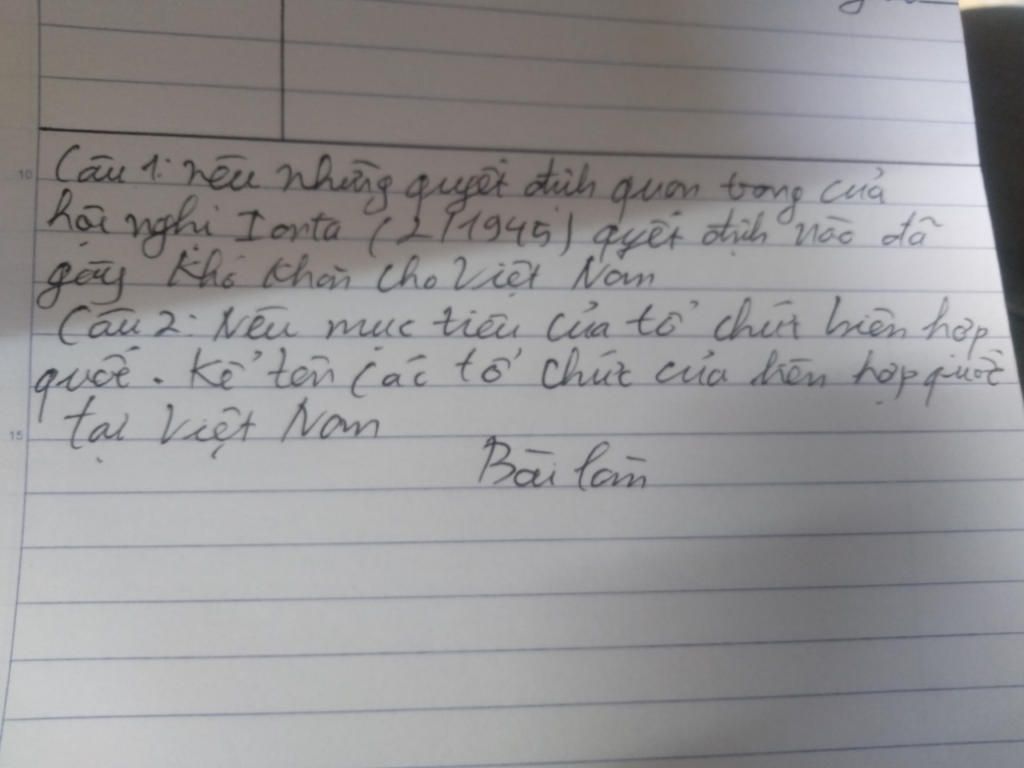 Câu 1: nêu những quyết định quan trong của
hội nghi Ianta (2/1945) quyết định nào đã
gây khó khăn cho Việt Nam
Câu 2: Nêu mục tiêu của tổ chức liên hợp
quốc. Kể tên các tổ chức của liên hợp quốc
tại Việt Nam
Bài làm